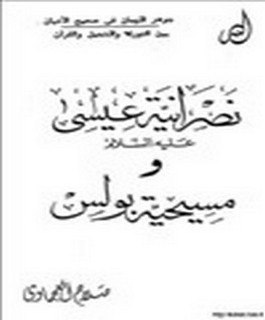 جوهر الإيمان في صحيح الأديان
بين التوراة والإنجيل والقرآن
نصرانية عيسى
عليه السلام
و
مسيحية بولس
صلاح العجماوي